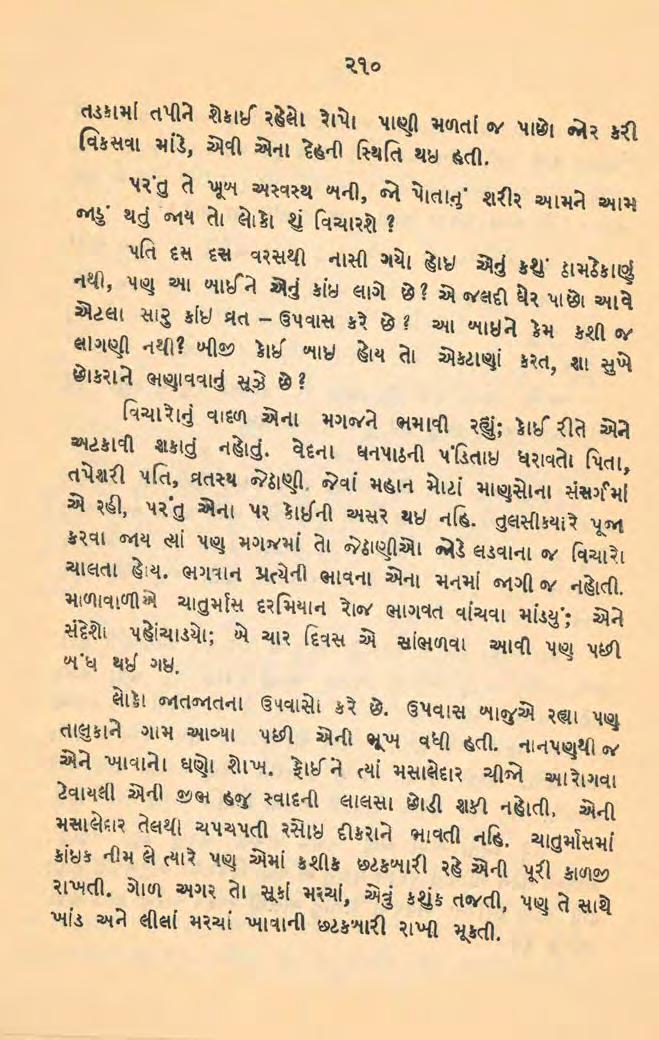 ૨૧૦
તડકામાં તપીને શેકાઈ રહેલો રોપો પાણી મળતાં જ પાછો જોર કરી
વિકસવા માંડે, એવી એના દેહની સ્થિતિ થઇ હતી.
પરંતુ તે ખૂબ અસ્વસ્થ બની, જો પોતાનું શરીર આમને આમ
જાડું થતું જાય તો લોકો શું વિચારશે ?
પતિ દસ દસ વરસથી નાસી ગયો હોઇ એનું કશું ઠામઠેકાણું
નથી, પણ આ બાઈને એનું કાંઇ લાગે છે? એ જલદી ઘેર પાછો આવે
એટલા સારુ કાંઇ વ્રત – ઉપવાસ કરે છે ? આ બાઇને કેમ કશી જ
લાગણી નથી? બીજી કોઈ બાઇ હોય તો એકટાણાં કરત, શા સુખે
છોકરાને ભણાવવાનું સૂઝે છે ?
વિચારોનું વાદળ એના મગજને ભમાવી રહ્યું; કોઈ રીતે એને
અટકાવી શકાતું નહોતું. વેદના ધનપાઠની પંડિતાઇ ધરાવતો પિતા,
તપેશ્વરી પતિ, વ્રતસ્થ જેઠાણી. જેવાં મહાન મોટાં માણુસોના સંસર્ગમાં
એ રહી, પરંતુ એના પર કોઈની અસર થઇ નહિ. તુલસીક્યારે પૂજા
કરવા જાય ત્યાં પણ મગજમાં તો જેઠાણીઓ જોડે લડવાના જ વિચારો
ચાલતા હોય. ભગવાન પ્રત્યેની ભાવના એના મનમાં જાગી જ નહોતી.
માળાવાળીએ ચાતુર્માસ દરમિયાન રોજ ભાગવત વાંચવા માંડયું; એને
સંદેશો પહોંચાડયો; બે ચાર દિવસ એ સાંભળવા આવી પણ પછી
બંધ થઈ ગઇ.
લોકો જાતજાતના ઉપવાસો કરે છે. ઉપવાસ બાજુએ રહ્યા પણ
તાલુકાને ગામ આવ્યા પછી એની ભૂખ વધી હતી. નાનપણુથી જ
એને ખાવાનો ઘણો શોખ. ફોઈને ત્યાં મસાલેદાર ચીજો આરોગવા
ટેવાયલી એની જીભ હજુ સ્વાદની લાલસા છોડી શકી નહોતી. એની
મસાલેદાર તેલથી ચપચપતી રસોઇ દીકરાને ભાવતી નહિ. ચાતુર્માસમાં
કાંઇક નીમ લે ત્યારે પણ એમાં કશીક છટકબારી રહે એની પૂરી કાળજી
રાખતી. ગોળ અગર તો સૂકાં મરચાં, એવું કશુંક તજતી, પણ તે સાથે
ખાંડ અને લીલાં મરચાં ખાવાની છટકબારી રાખી મૂકતી.